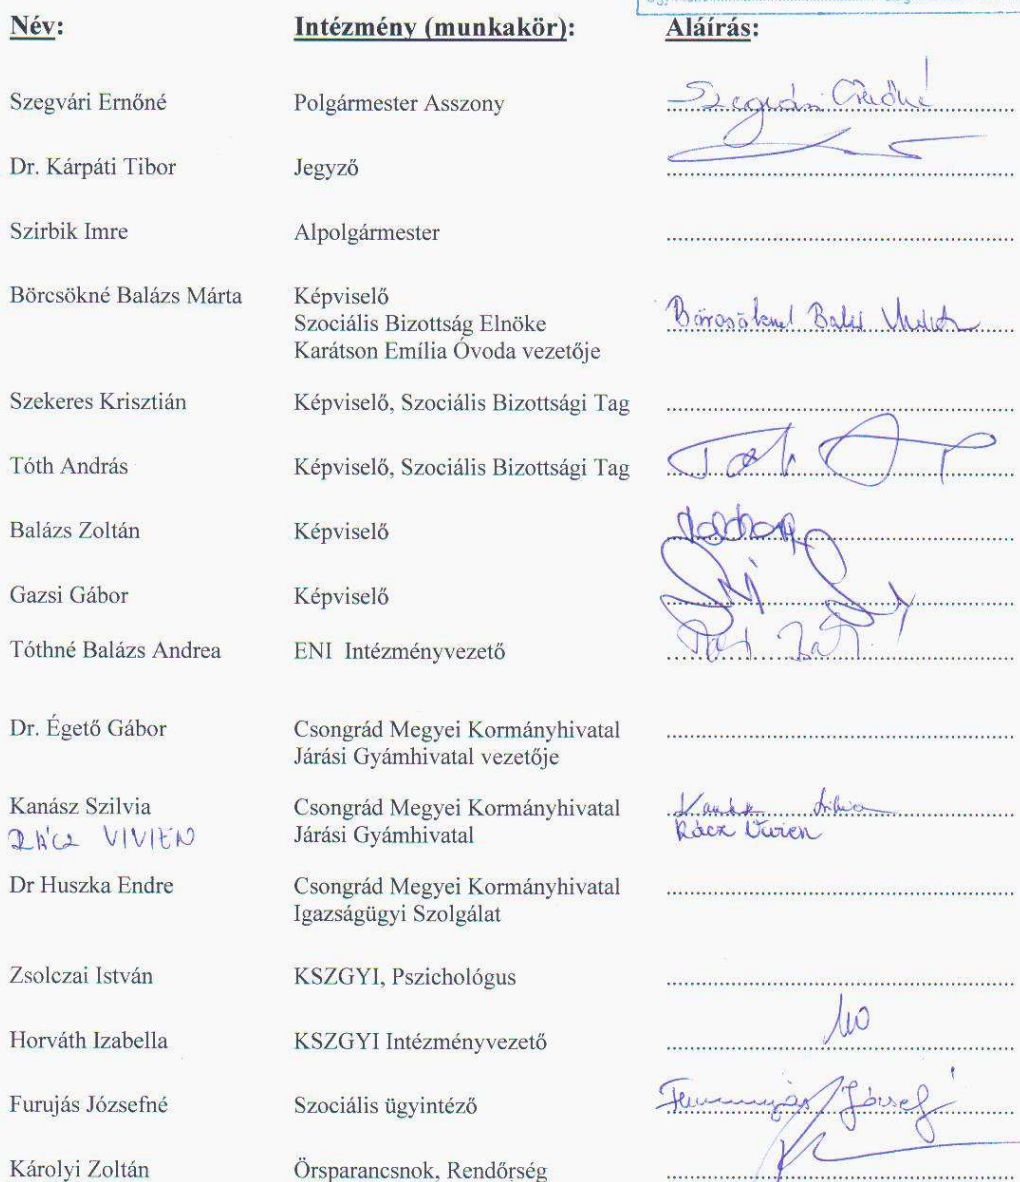 Név: Intézmény (munkakör): Aláírás:
Szegvári Ernőné Polgármester Asszony Szegvári Ernőné
Dr. Kárpáti Tibor Jegyző
Szirbik Imre Alpolgármester
Börcsökné Balázs Márta Képviselő
Szociális Bizottság Elnöke Börcsökné Balázs Márta
Karátson Emília Óvoda vezetője
Szekeres Krisztián Képviselő, Szociális Bizottsági Tag
Tóth András Képviselő, Szociális Bizottsági Tag Tóth
Balázs Zoltán Képviselő
Gazsi Gábor Képviselő
Tóthné Balázs Andrea ENI Intézményvezető
Dr. Égető Gábor Csongrád Megyei Kormányhivatal
Járási Gyámhivatal vezetője
Kanász Szilvia Csongrád Megyei Kormányhivatal Kanász Szilvia
RÁCZ VIVIEN Járási Gyámhivatal Rácz Vivien
Dr Huszka Endre Csongrád Megyei Kormányhivatal
Igazságügyi Szolgálat
Zsolczai István KSZGYI, Pszichológus
Horváth Izabella KSZGYI Intézményvezető
Furujás Józsefné Szociális ügyintéző Furujás József
Károlyi Zoltán Örsparancsnok, Rendőrség